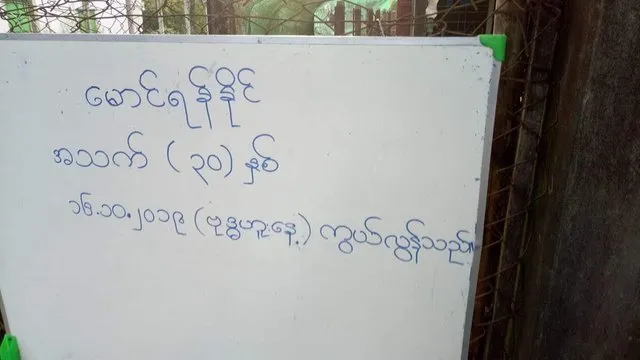 မောင်ရန်နိုင်
အသက် ( ၃၀ ) နှစ်
၁၆.၁၀.၂၀၁၉ ( ဗုဒ္ဓဟူးနေ့ ) ကွယ်လွန်သည်။